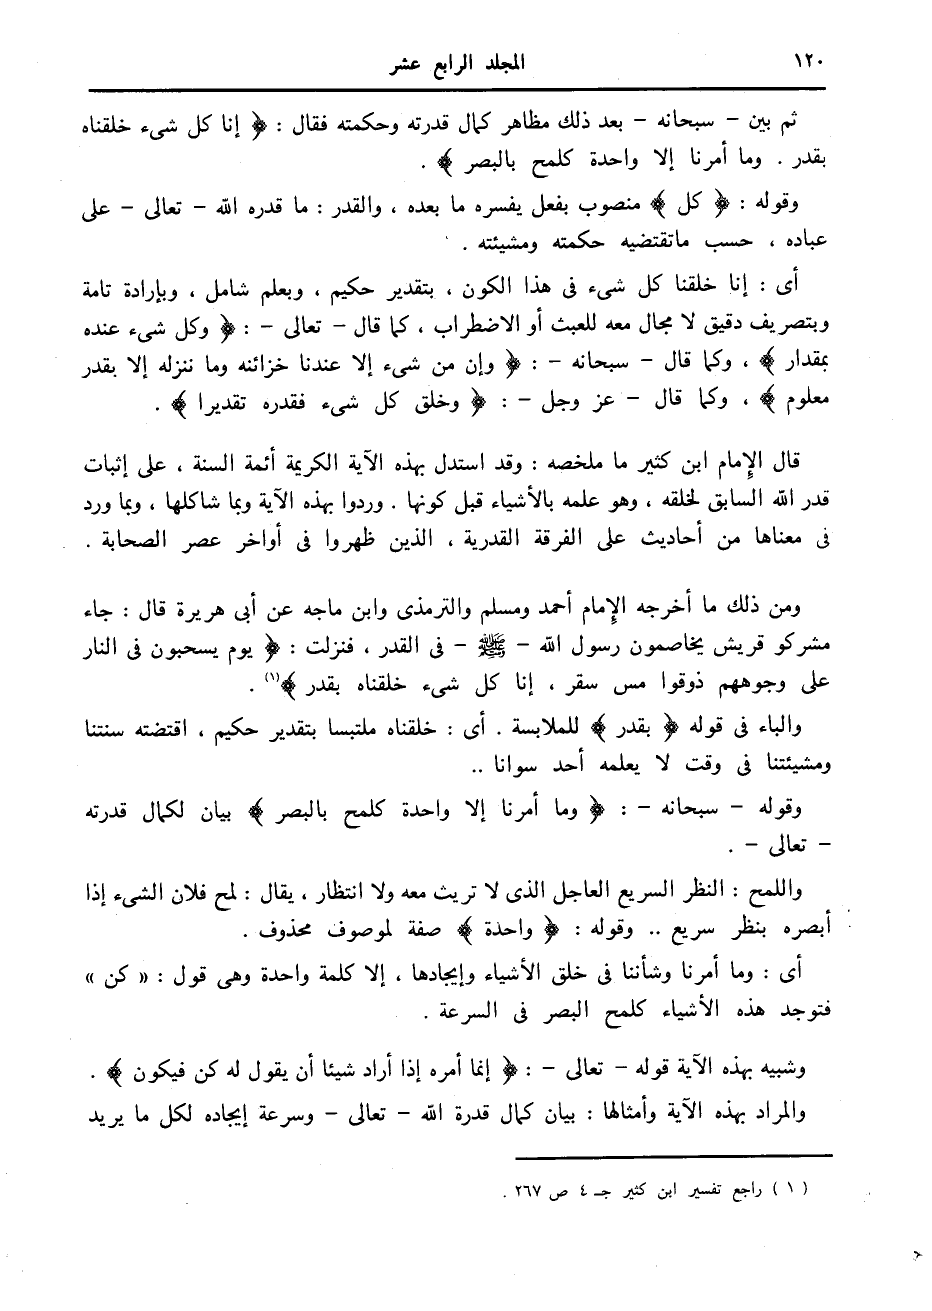 ١٢٠
المجلد الرابع عشر
ثم بين – سبحانه – بعد ذلك مظاهر كمال قدرته وحكمته فقال : ﴿ إنا كل شىء خلقناه
بقدر . وما أمرنا إلا واحدة كلمح بالبصر ﴾ .
وقوله : ﴿ كل ﴾ منصوب بفعل يفسره ما بعده ، والقدر : ما قدره الله – تعالى – على
عباده ، حسب ماتقتضيه حكمته ومشيئته .
أى : إنا خلقنا كل شىء فى هذا الكون ، بتقدير حكيم ، وبعلم شامل ، وبإرادة تامة
وبتصريف دقيق لا مجال معه للعبث أو الاضطراب ، كما قال – تعالى – : ﴿ وكل شىء عنده
بمقدار ﴾ ، وكما قال – سبحانه – : ﴿ وإن من شىء إلا عندنا خزائنه وما ننزله إلا بقدر
معلوم ﴾ ، وكما قال – عز وجل – : ﴿ وخلق كل شىء فقدره تقديرا ﴾ .
قال الإمام ابن كثير ما ملخصه : وقد استدل بهذه الآية الكريمة أئمة السنة ، على إثبات
قدر الله السابق لخلقه ، وهو علمه بالأشياء قبل كونها . وردوا بهذه الآية وبما شاكلها ، وبما ورد
فى معناها من أحاديث على الفرقة القدرية ، الذين ظهروا فى أواخر عصر الصحابة .
ومن ذلك ما أخرجه الإمام أحمد ومسلم والترمذى وابن ماجه عن أبى هريرة قال : جاء
مشركو قريش يخاصمون رسول الله – ﷺ – فى القدر ، فنزلت : ﴿ يوم يسحبون فى النار
على وجوههم ذوقوا مس سقر ، إنا كل شىء خلقناه بقدر ﴾(١) .
والباء فى قوله ﴿ بقدر ﴾ للملابسة . أى : خلقناه ملتبسا بتقدير حكيم ، اقتضته سنتنا
ومشيئتنا فى وقت لا يعلمه أحد سوانا ..
وقوله – سبحانه – : ﴿ وما أمرنا إلا واحدة كلمح بالبصر ﴾ بيان لكمال قدرته
– تعالى – .
واللمح : النظر السريع العاجل الذى لا تريث معه ولا انتظار ، يقال : لمح فلان الشىء إذا
أبصره بنظر سريع .. وقوله : ﴿ واحدة ﴾ صفة لموصوف محذوف .
أى : وما أمرنا وشأننا فى خلق الأشياء وإيجادها ، إلا كلمة واحدة وهى قول : « كن »
فتوجد هذه الأشياء كلمح البصر فى السرعة .
وشبيه بهذه الآية قوله – تعالى – : ﴿ إنما أمره إذا أراد شيئا أن يقول له كن فيكون ﴾ .
والمراد بهذه الآية وأمثالها : بيان كمال قدرة الله – تعالى – وسرعة إيجاده لكل ما يريد
( ١ ) راجع تفسير ابن كثير جـ ٤ ص ٢٦٧ .